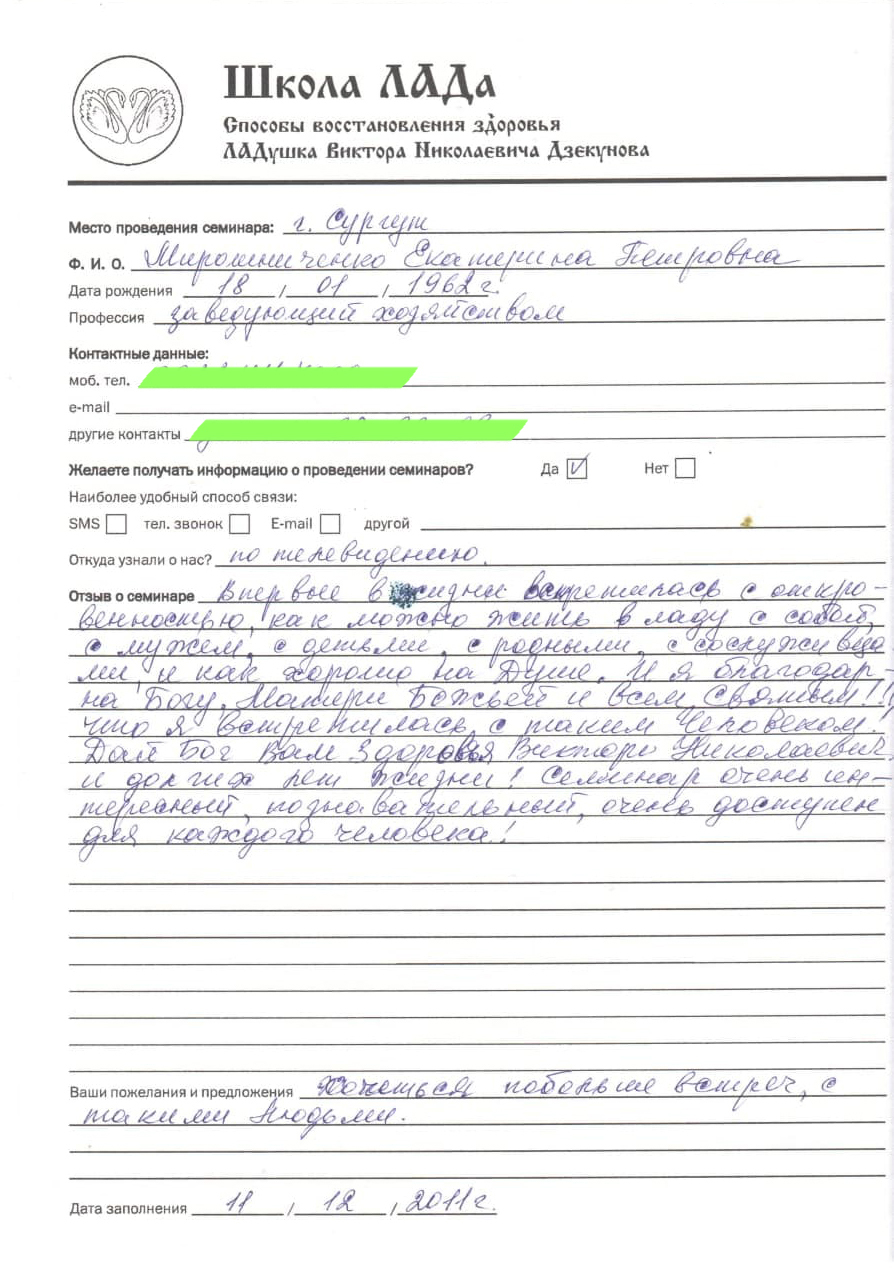 Школа ЛАДа
Способы восстановления здоровья
ЛАДушка Виктора Николаевича Дзекунова
Место проведения семинара: г. Сургут
Ф. И. О. Мирошниченко Екатерина Петровна
Дата рождения 18 / 01 / 1962 г.
Профессия заведующий хозяйством
Контактные данные:
моб. тел.
e-mail
другие контакты
Желаете получать информацию о проведении семинаров? Да ☑ Нет ☐
Наиболее удобный способ связи:
SMS ☐ тел. звонок ☐ E-mail ☐ другой
Откуда узнали о нас? по телевидению.
Отзыв о семинаре Впервые в жизни встретилась с откро-
венностью, как можно жить в ладу с собой,
с мужем, с детьми, с родными, с сослуживца
ми, и как хорошо на Душе. И я благодар
на Богу, Матери Божьей и всем Святым!!!
что я встретилась с таким Человеком!
Дай Бог Вам Здоровья Виктор Николаевич
и долгих лет жизни! Семинар очень ин-
тересный, познавательный, очень доступен
для каждого человека!
Ваши пожелания и предложения Хочеться побольше встреч, с
такими людьми.
Дата заполнения 11 / 12 / 2011 г.